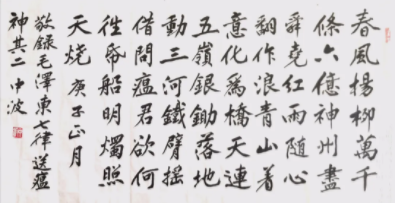 春風楊柳萬千
條六億神州盡
舜堯紅雨隨心
翻作浪青山着
意化為橋天連
五嶺銀鋤落地
動三河鐵臂摇
借問瘟君欲何
徃帋船明燭照
天烧 庚子正月
敬錄毛澤東七律送瘟
神其二 中波